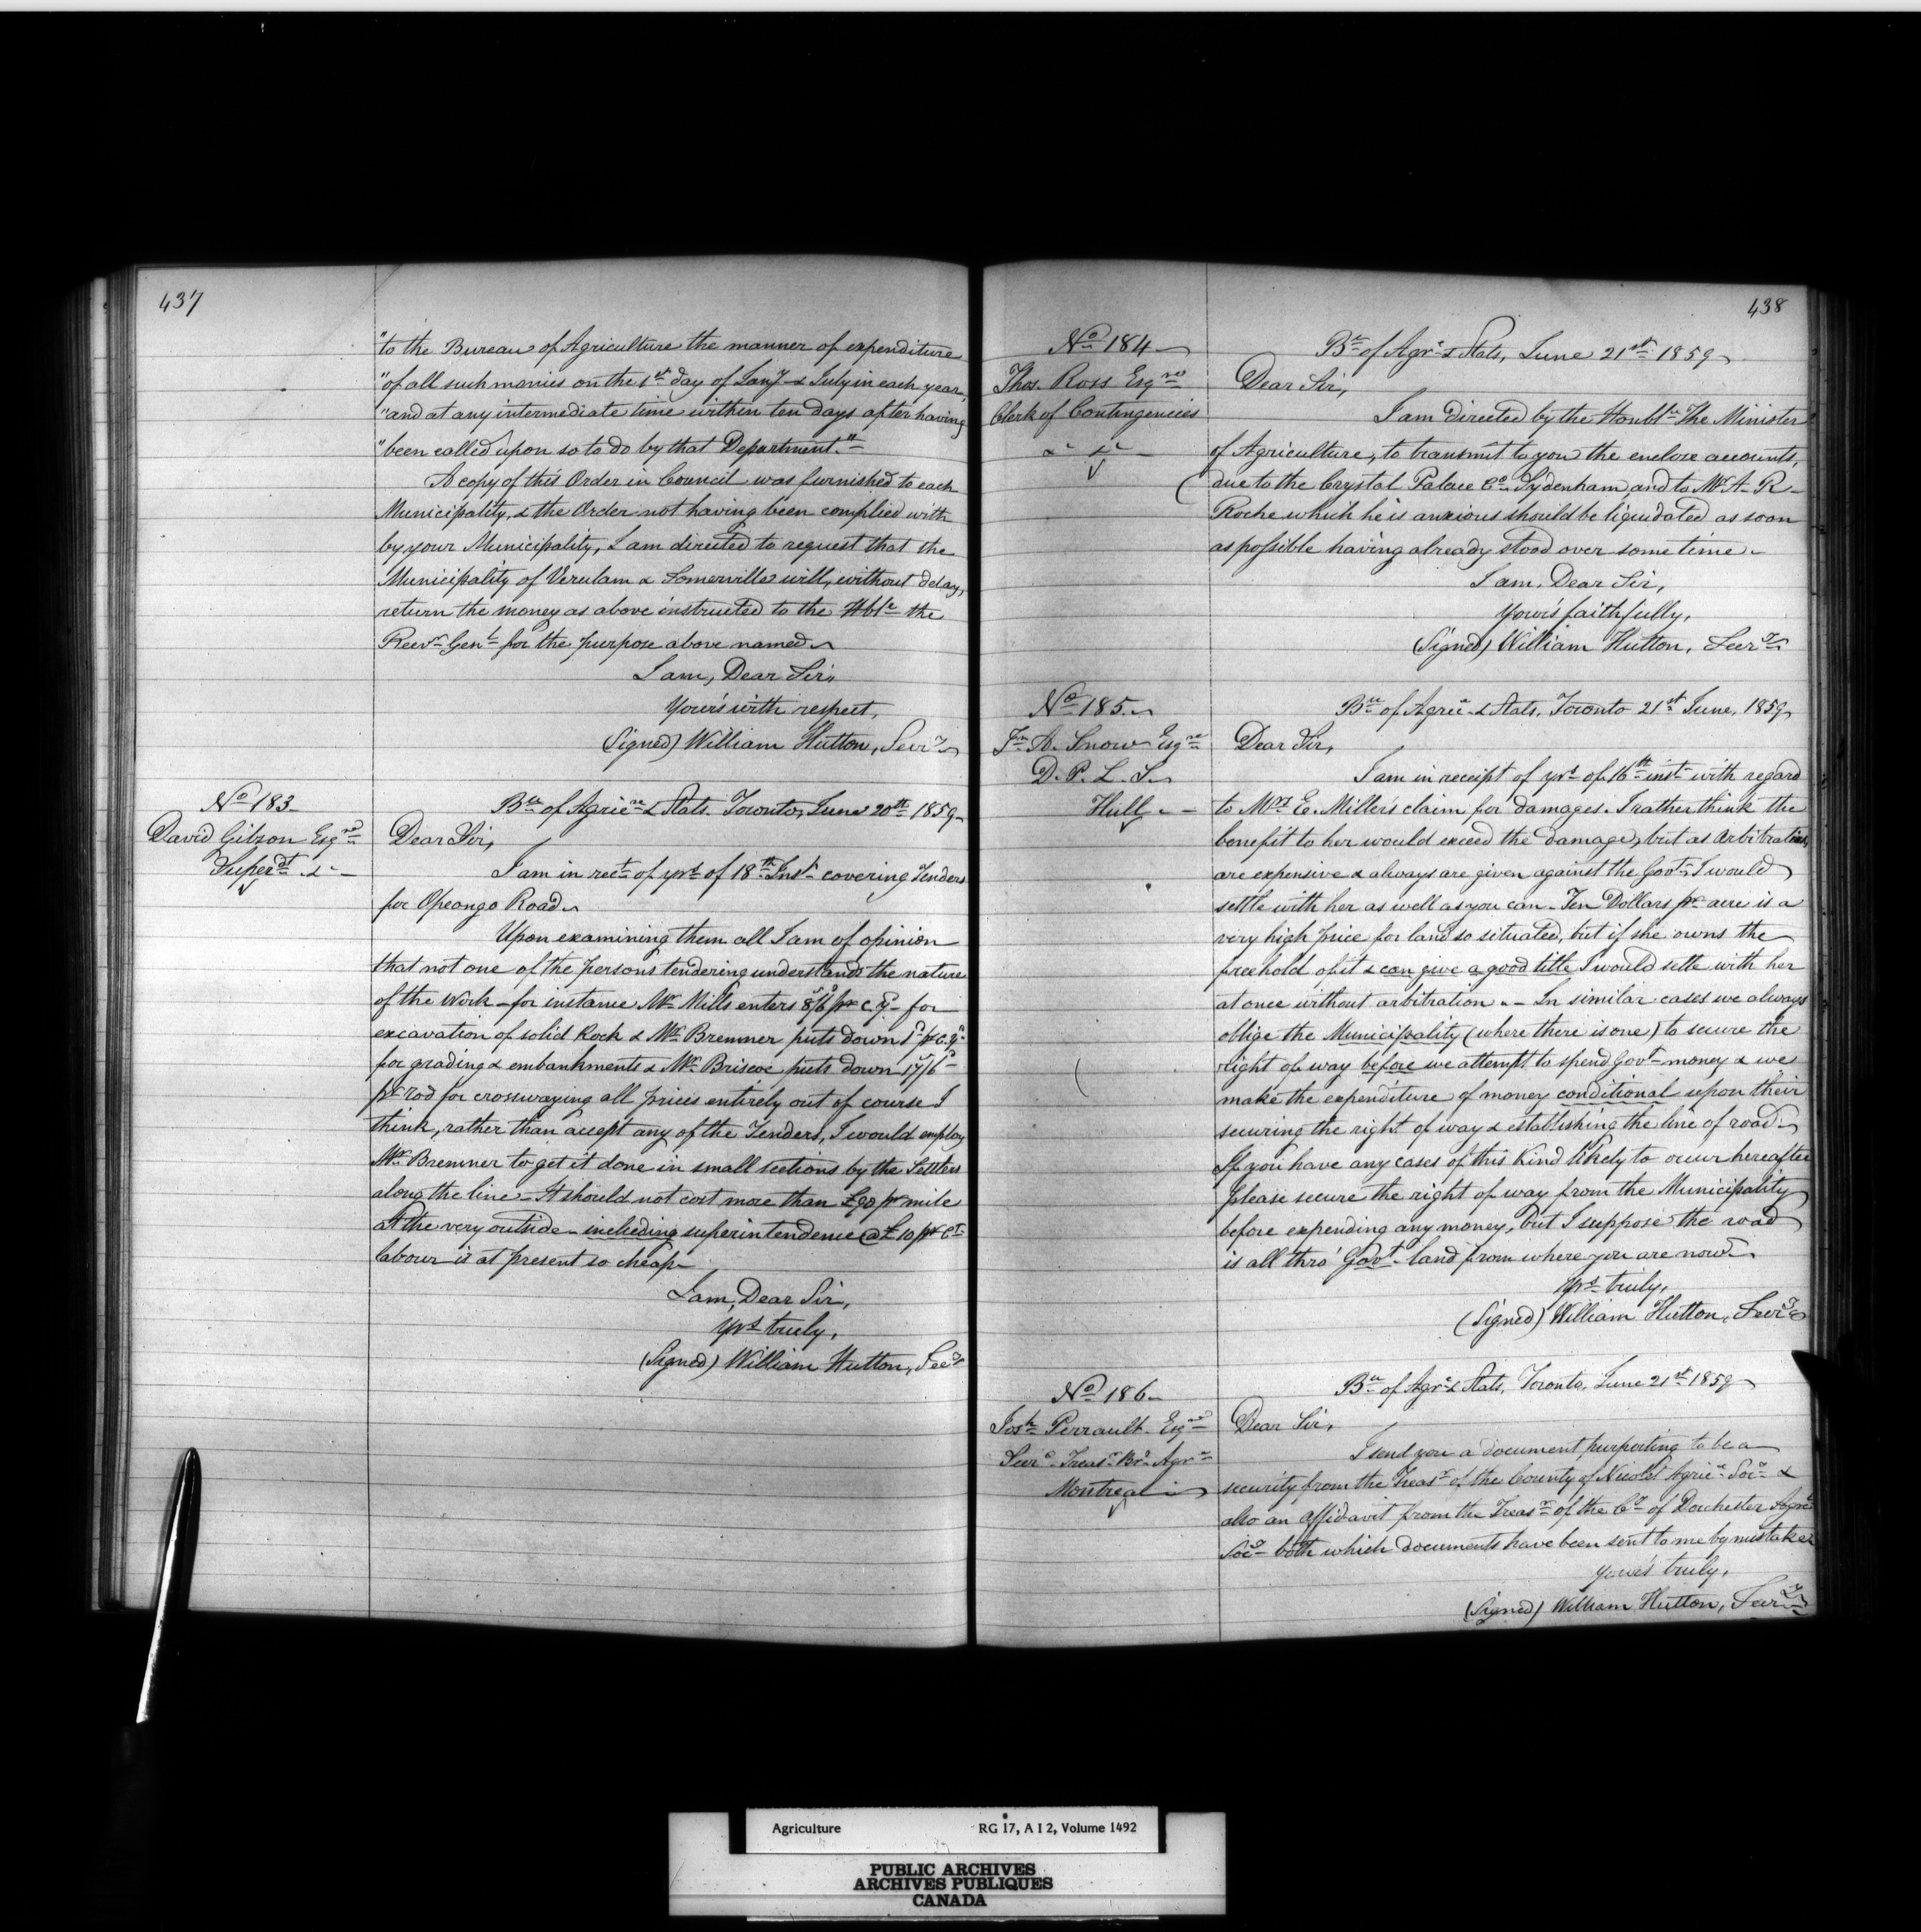 437
"to the Bureau of Agriculture the manner of expenditure
"of all such monies on the 1st day of Jany & July in each year,
"and at any intermediate time within ten days after having
"been called upon so to do by that Department."
A copy of this Order in Council was furnished to each
Municipality, & the Order not having been complied with
by your Municipality, I am directed to request that the
Municipality of Verulam & Somerville will, without delay,
return the money as above instructed to the Hble the
Recvr Genl for the purpose above named
I am, Dear Sir,
Your's with respect,
(Signed) William Hutton, Secry
No 183
David Gibson Esqre
Superdt &c
Bu of Agrice & Stats. Toronto, June 20th 1859
Dear Sir,
I am in rect of yrs of 18th Inst covering Tenders
for Opeongo Road
Upon examining them all I am of opinion
that not one of the persons tendering understands the nature
of the Work - for instance Mr Mills enters 8/6 pr c.y. for
excavation of solid Rock & Mr Bremner puts down 1d pr c.y.
for grading & embankments & Mr Briscoe puts down 17/6
pr rod for crosswaying all prices entirely out of course I
think, rather than accept any of the Tenders, I would employ
Mr Bremner to get it done in small sections by the Settlers
along the line - It should not cost more than £90 pr mile
at the very outside - including superintendence @ £10 pr Ct
labour is at present so cheap
I am, Dear Sir,
yrs truly,
(Signed) William Hutton, Secy
438
No 184
Thos. Ross Esqre
Clerk of Contingencies
&c &c
Bu of Agr & Stats, June 21st 1859
Dear Sir,
I am directed by the Honble The Minister
of Agriculture, to transmit to you the enclose accounts,
due to the Crystal Palace Co Sydenham and to Mr A. R.
Roche which he is anxious should be liquidated as soon
as possible having already stood over some time
I am, Dear Sir,
Your's faithfully,
(Signed) William Hutton, Secry
No 185
Jn A. Snow Esqre
D. P. L. S.
Hull
Bu of Agrice & Stats, Toronto 21st June, 1859
Dear Sir,
I am in receipt of yrs of 16th inst with regard
to Mrs E. Miller's claim for damages. I rather think the
benefit to her would exceed the damage, but as Arbitrations
are expensive & always are given against the Govt I would
settle with her as well as you can - Ten Dollars pr acre is a
very high price for land so situated, but if she owns the
freehold of it & can give a good title I would settle with her
at once without arbitration - In similar cases we always
oblige the Municipality (where there is one) to secure the
right of way before we attempt to spend Govt money & we
make the expenditure of money conditional upon their
securing the right of way & establishing the line of road
If you have any cases of this Kind likely to occur hereafter
please secure the right of way from the Municipality
before expending any money, but I suppose the road
is all thro' Govt land from where you are now
Yrs truly,
(Signed) William Hutton, Secry
No 186
Josh Perrault Esqre
Secr Treasr Bd Agre
Montreal
Bu of Agr & Stats, Toronto, June 21st 1859
Dear Sir,
I send you a document purporting to be a
security from the Treasr of the County of Nicolet Agric Soc &
also an Affidavit from the Treasr of the Cy of Dorchester Agric
Socy both which documents have been sent to me by mistake
your's truly,
(Signed) William Hutton, Secry
Agriculture
RG 17, A I 2, Volume 1492
PUBLIC ARCHIVES
ARCHIVES PUBLIQUES
CANADA